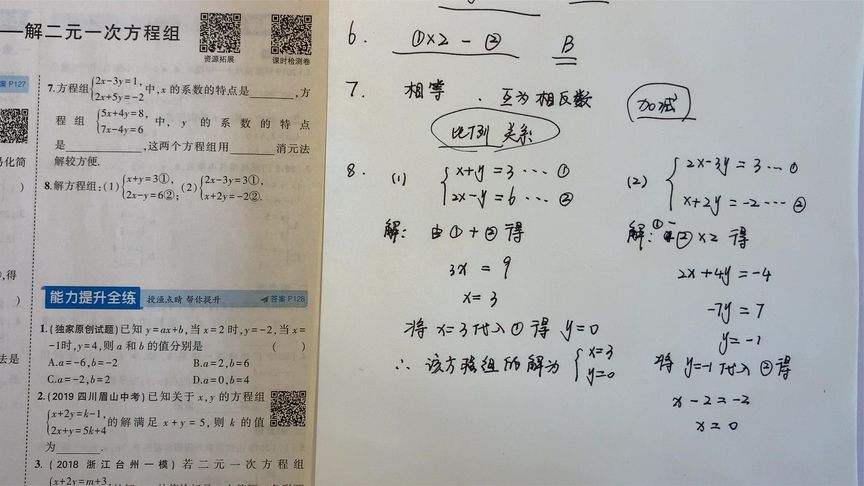 一解二元一次方程组
资源拓展
课时检测卷
案 P127
7.方程组{2x-3y=1, 2x+5y=-2 中,x 的系数的特点是______,方
程组{5x+4y=8, 7x-4y=6 中,y 的系数的特点
是______,这两个方程组用______消元法
解较方便.
易化简
)
8.解方程组:(1){x+y=3①, 2x-y=6②; (2){2x-3y=3①, x+2y=-2②.
,得
)
能力提升全练 授渔点睛 帮你提升 答案 P128
1.(独家原创试题)已知 y=ax+b,当 x=2 时,y=-2,当 x=
-1时,y=4,则 a 和 b 的值分别是 ( )
A.a=-6,b=-2 B.a=2,b=6
C.a=-2,b=2 D.a=0,b=4
法是
2.(2019 四川眉山中考)已知关于 x,y 的方程组
{x+2y=k-1, 2x+y=5k+4 的解满足 x+y=5,则 k 的值
为______.
3.(2018 浙江台州一模)若二元一次方程组
{x+2y=m+3,
6. ①×2-② B
7. 相等 . 互为相反数 加减
比例 关系
8. (1) {x+y=3…① 2x-y=6…②
解: 由①+②得
3x=9
x=3
将 x=3代入①得 y=0
∴ 该方程组的解为{x=3 y=0
(2) {2x-3y=3…① x+2y=-2…②
解: ①-②×2 得
2x+4y=-4
-7y=7
y=-1
将 y=-1代入②得
x-2=-2
x=0